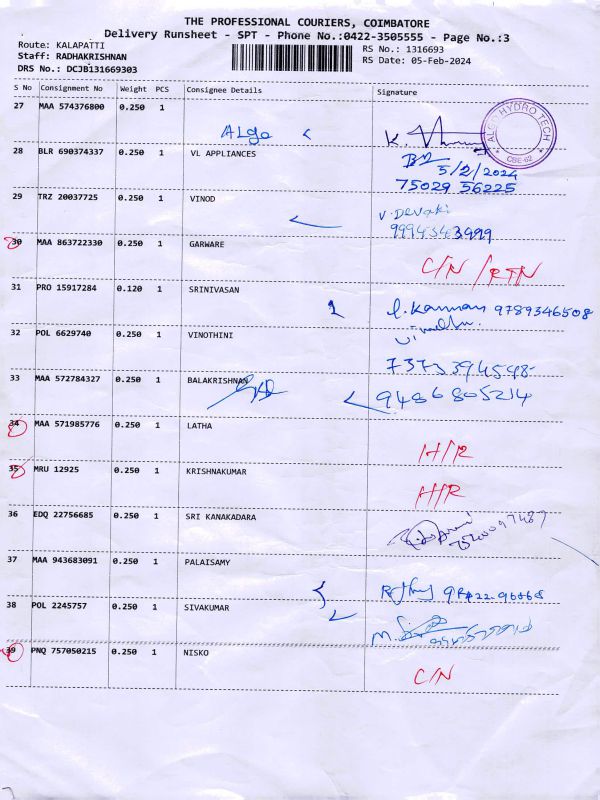 THE PROFESSIONAL COURIERS, COIMBATORE
Delivery Runsheet - SPT - Phone No.:0422-3505555 - Page No.:3
Route: KALAPATTI
Staff: RADHAKRISHNAN
DRS No.: DCJB131669303
RS No.: 1316693
RS Date: 05-Feb-2024
S No Consignment No Weight PCS Consignee Details Signature
27 MAA 574376800 0.250 1
Algo
K.
ALGO HYDRO TECH
CBE-62
28 BLR 690374337 0.250 1 VL APPLIANCES
5/2/2024
75029 56225
29 TRZ 20037725 0.250 1 VINOD
V. Devaki
30 MAA 863722330 0.250 1 GARWARE
C/N /RTN
31 PRO 15917284 0.120 1 SRINIVASAN
l. Kannan 9789346508
32 POL 6629740 0.250 1 VINOTHINI
7373394598
33 MAA 572784327 0.250 1 BALAKRISHNAN
9486805214
34 MAA 571985776 0.250 1 LATHA
H/R
35 MRU 12925 0.250 1 KRISHNAKUMAR
H/R
36 EDQ 22756685 0.250 1 SRI KANAKADARA
37 MAA 943683091 0.250 1 PALAISAMY
38 POL 2245757 0.250 1 SIVAKUMAR
M.
39 PNQ 757050215 0.250 1 NISKO
C/N